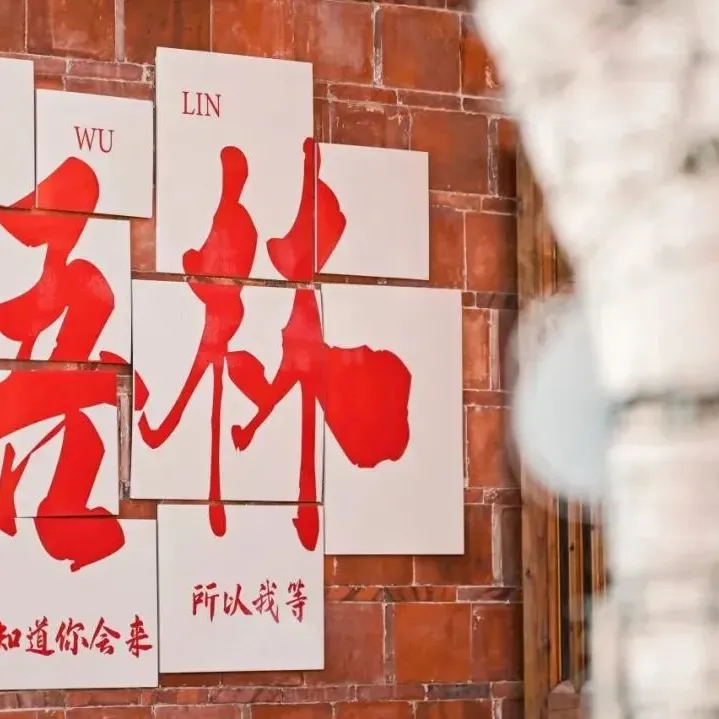 WU LIN
梧林
知道你会来
所以我等